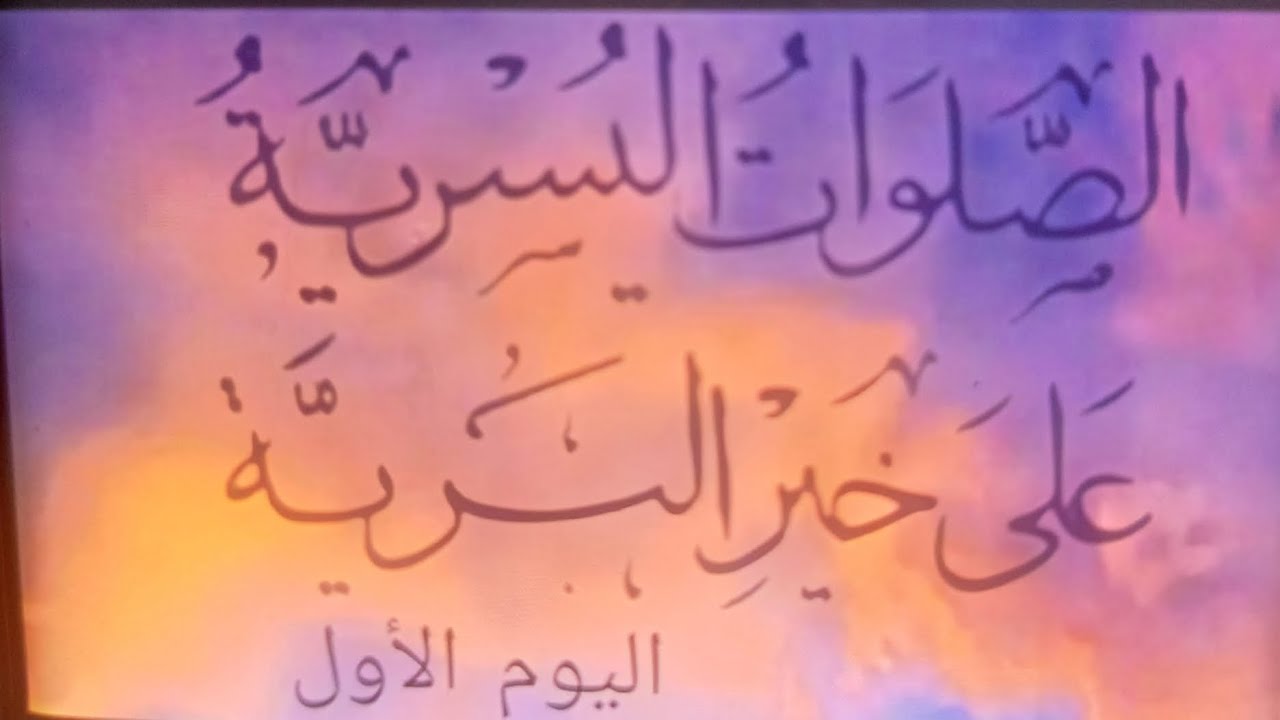 الصَّلَوَاتُ الْيُسْرِيَّةُ
عَلَى خَيْرِ الْبَرِيَّة
اليوم الأول